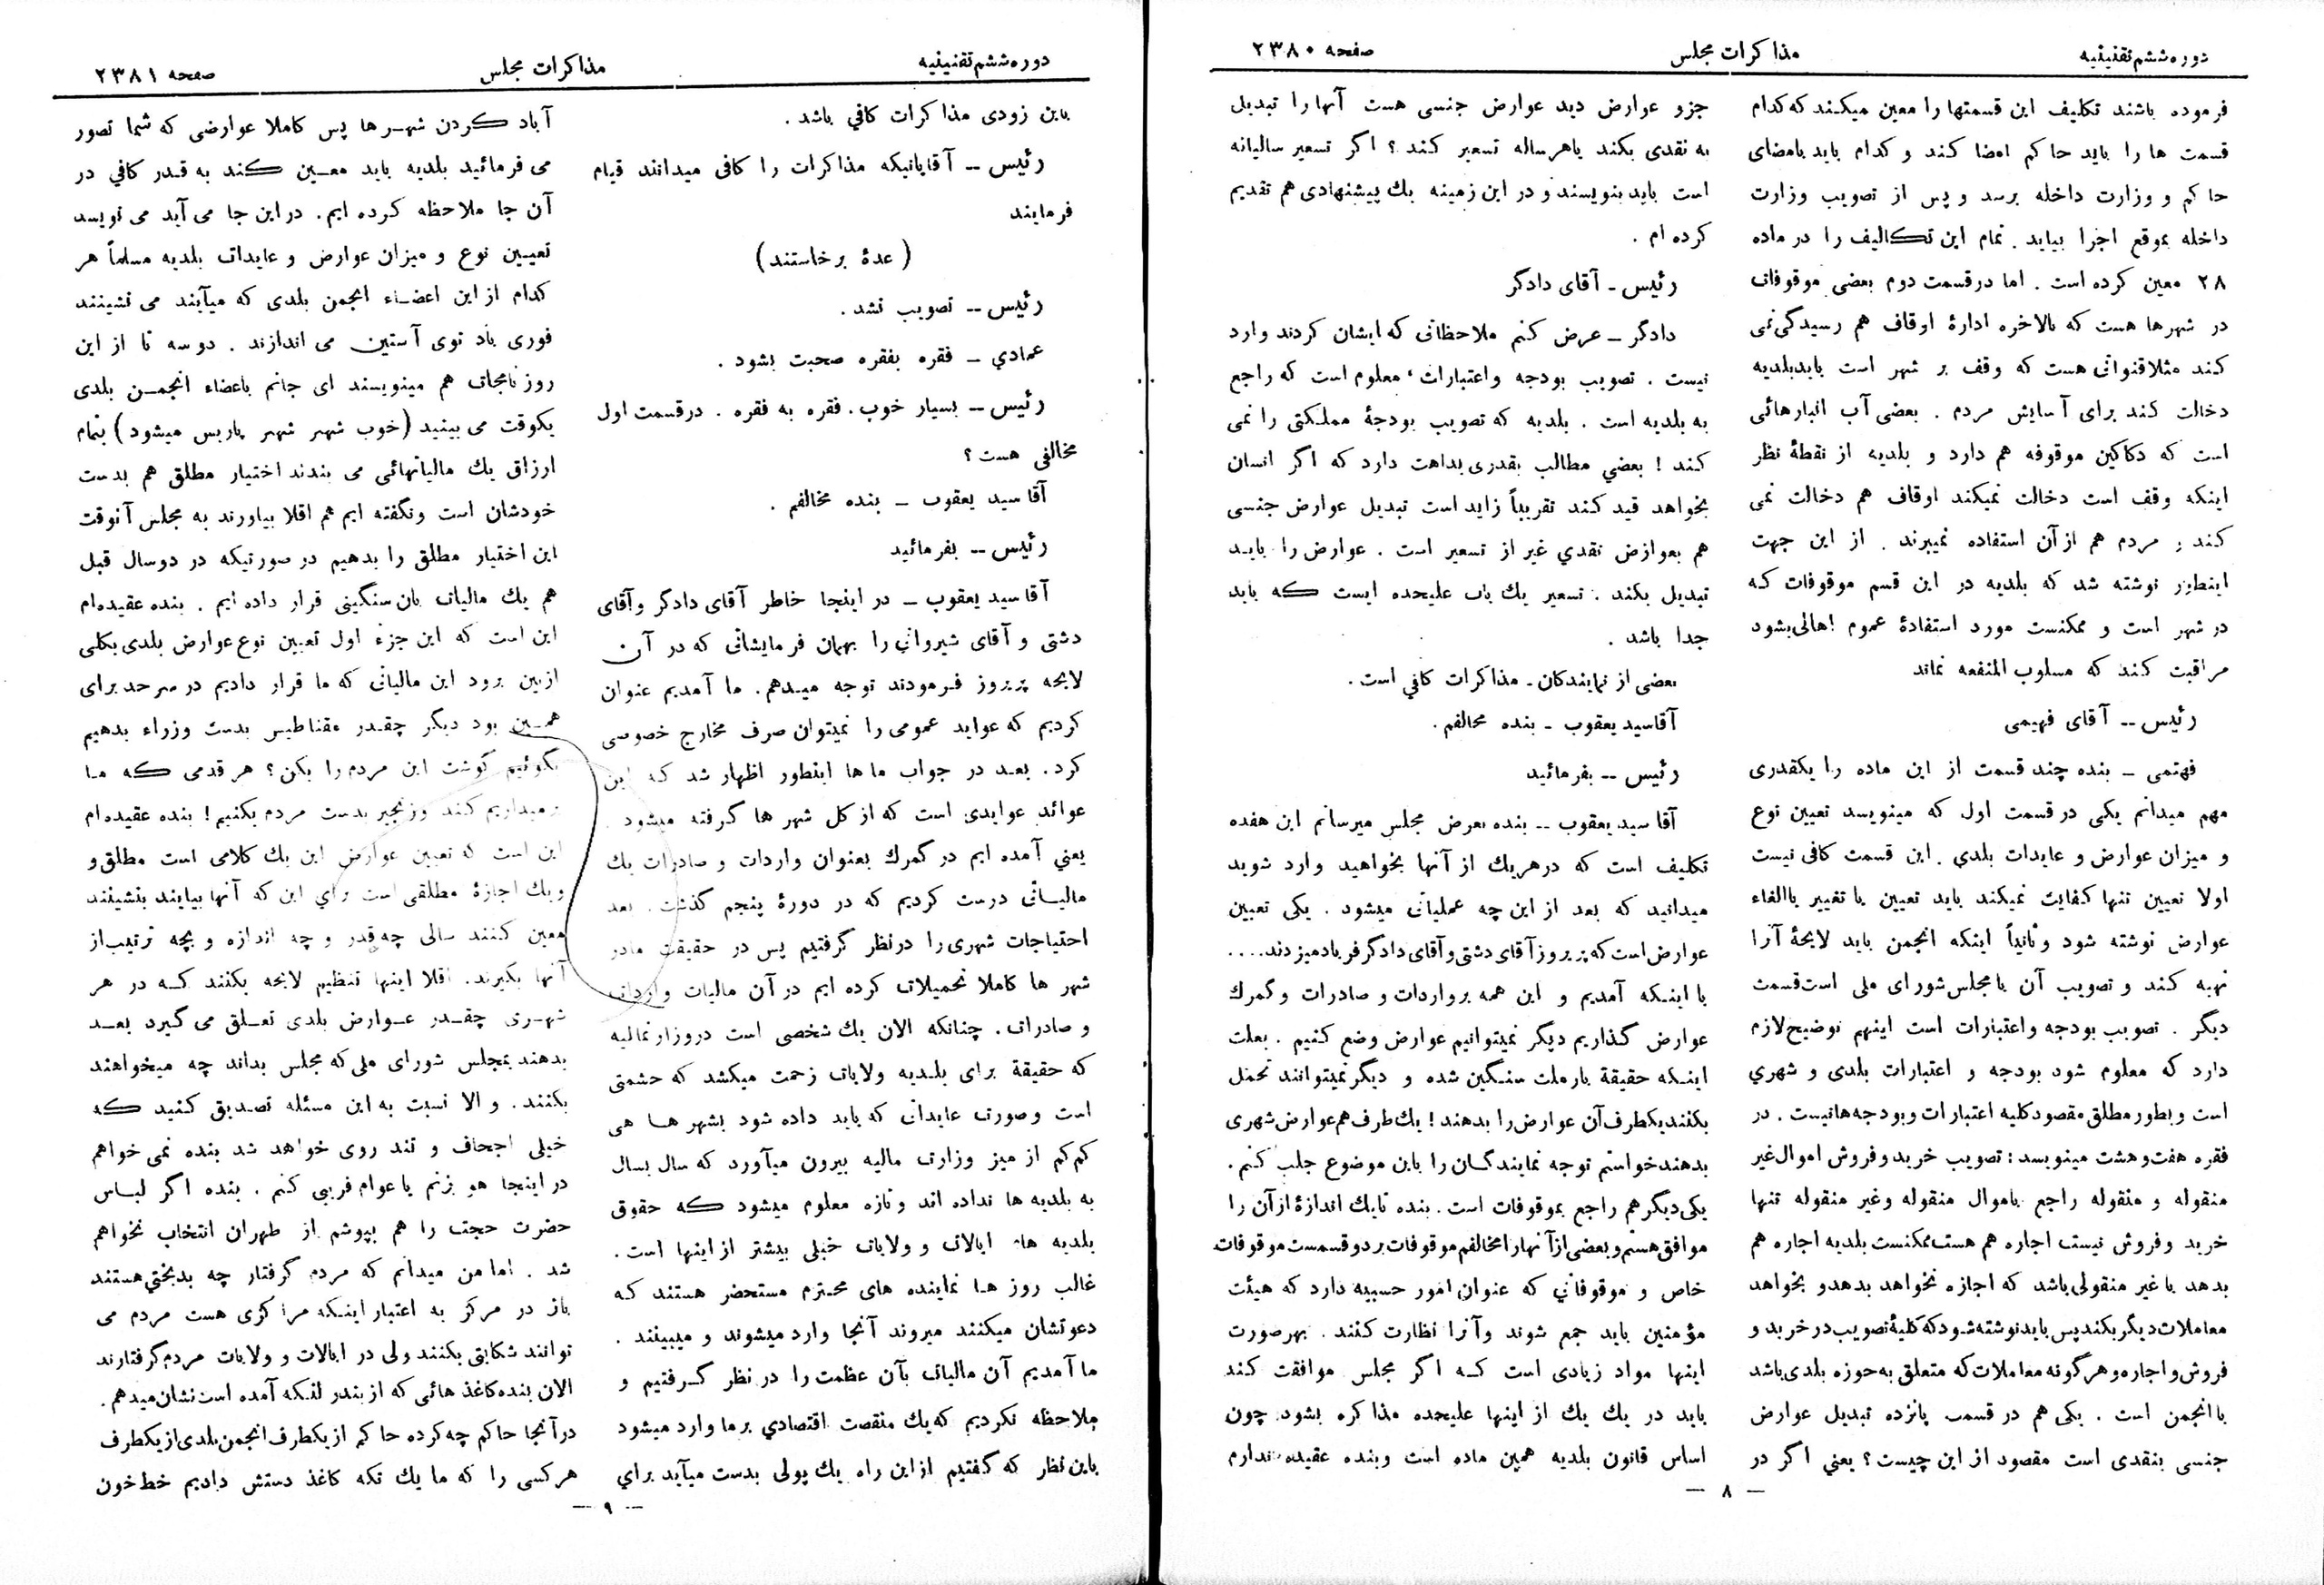 دوره ششم تقنینیه
مذاکرات مجلس
صفحه ۲۳۸۰
فرموده باشند تکلیف این قسمتها را معین میکند که کدام
قسمت ها را باید حاکم امضا کند و کدام باید بامضای
حاکم و وزارت داخله برسد و پس از تصویب وزارت
داخله بموقع اجرا بیاید. تمام این تکالیف را در ماده
۲۸ معین کرده است. اما در قسمت دوم بعضی موقوفات
در شهرها هست که بالاخره ادارهٔ اوقاف هم رسیدگی نمی
کند مثلا قنواتی هست که وقف بر شهر است باید بلدیه
دخالت کند برای آسایش مردم. بعضی آب انبارهائی
است که دکاکین موقوفه هم دارد و بلدیه از نقطهٔ نظر
اینکه وقف است دخالت نمیکند اوقاف هم دخالت نمی
کند و مردم هم از آن استفاده نمیبرند. از این جهت
اینطور نوشته شد که بلدیه در این قسم موقوفات که
در شهر است و ممکنست مورد استفادهٔ عموم اهالی بشود
مراقبت کند که مسلوب المنفعه نماند
رئیس -- آقای فهیمی
فهیمی - بنده چند قسمت از این ماده را یکقدری
مهم میدانم یکی در قسمت اول که مینویسد تعیین نوع
و میزان عوارض و عایدات بلدی. این قسمت کافی نیست
اولا تعیین تنها کفایت نمیکند باید تعیین یا تغییر یاالغاء
عوارض نوشته شود و ثانیاً اینکه انجمن باید لایحهٔ آنرا
تهیه کند و تصویب آن با مجلس شورای ملی است قسمت
دیگر. تصویب بودجه و اعتبارات است اینهم توضیح لازم
دارد که معلوم شود بودجه و اعتبارات بلدی و شهري
است و بطور مطلق مقصود کلیه اعتبارات و بودجه ها نیست. در
فقره هفت و هشت مینویسد: تصویب خرید و فروش اموال غیر
منقوله و منقوله راجع باموال منقوله و غیر منقوله تنها
خرید و فروش نیست اجاره هم هست ممکنست بلدیه اجاره هم
بدهد یا غیر منقولی باشد که اجازه نخواهد بدهد و بخواهد
معاملات دیگر بکند پس باید نوشته شود که کلیهٔ تصویب در خرید و
فروش و اجاره و هرگونه معاملات که متعلق به حوزه بلدی باشد
با انجمن است. یکی هم در قسمت پانزده تبدیل عوارض
جنسی بنقدی است مقصود از این چیست؟ یعنی اگر در
جزو عوارض دید عوارض جنسی هست آنها را تبدیل
به نقدی بکند یا هر ساله تسعیر کند؟ اگر تسعیر سالیانه
است باید بنویسند و در این زمینه یك پیشنهادی هم تقدیم
کرده ام.
رئیس - آقای دادگر
دادگر - عرض کنم ملاحظاتی که ایشان کردند وارد
نیست. تصویب بودجه و اعتبارات، معلوم است که راجع
به بلدیه است. بلدیه که تصویب بودجهٔ مملکتی را نمی
کند! بعضي مطالب بقدری بداهت دارد که اگر انسان
بخواهد قید کند تقریباً زاید است تبدیل عوارض جنسی
هم بعوارض نقدي غیر از تسعیر است. عوارض را باید
تبدیل بکند. تسعیر یك باب علیحده ایست که باید
جدا باشد.
بعضی از نمایندگان - مذاکرات کافي است.
آقاسید یعقوب - بنده مخالفم.
رئیس -- بفرمائید
آقا سید یعقوب -- بنده بعرض مجلس میرسانم این هفده
تکلیف است که در هر یك از آنها بخواهید وارد شوید
میدانید که بعد از این چه عملیاتی میشود. یکی تعیین
عوارض است که پریروز آقای دشتی و آقای دادگر فریاد میزدند....
با اینکه آمدیم و این همه بر واردات و صادرات و گمرك
عوارض گذاریم دیگر نمیتوانیم عوارض وضع کنیم. بعلت
اینکه حقیقة بار ملت سنگین شده و دیگر نمیتوانند تحمل
بکنند یکطرف آن عوارض را بدهند! یك طرف هم عوارض شهری
بدهند خواستم توجه نمایندگان را باین موضوع جلب کنم.
یکی دیگر هم راجع بموقوفات است. بنده تا یك اندازهٔ از آن را
موافق هستم و بعضی از آنها را مخالفم موقوفات بر دو قسمست موقوفات
خاص و موقوفاتي که عنوان امور حسبیه دارد که هیئت
مؤمنین باید جمع شوند و آنرا نظارت کنند. بهر صورت
اینها مواد زیادی است که اگر مجلس موافقت کند
باید در یك یك از اینها علیحده مذاکره بشود چون
اساس قانون بلدیه همین ماده است و بنده عقیده ندارم
— ۸ —
دوره ششم تقنینیه
مذاکرات مجلس
صفحه ۲۳۸۱
باین زودی مذاکرات کافي باشد.
رئیس -- آقایانیکه مذاکرات را کافی میدانند قیام
فرمایند
(عدهٔ برخاستند)
رئیس -- تصویب نشد.
عمادي - فقره بفقره صحبت بشود.
رئیس -- بسیار خوب. فقره به فقره. در قسمت اول
مخالفی هست؟
آقا سید یعقوب - بنده مخالفم.
رئیس -- بفرمائید
آقا سید یعقوب - در اینجا خاطر آقای دادگر و آقای
دشتی و آقای شیروانی را بهمان فرمایشاتی که در آن
لایحه پریروز فرمودند توجه میدهم. ما آمدیم عنوان
کردیم که عواید عمومی را نمیتوان صرف مخارج خصوصی
کرد. بعد در جواب ماها اینطور اظهار شد که این
عوائد عوایدی است که از کل شهر ها گرفته میشود.
یعني آمده ایم در گمرك بعنوان واردات و صادرات یك
مالیاتی درست کردیم که در دورهٔ پنجم گذشت. بعد
احتیاجات شهری را در نظر گرفتیم پس در حقیقت ما در
شهر ها کاملا تحمیلات کرده ایم در آن مالیات واردات
و صادرات. چنانکه الان یك شخصی است در وزارتمالیه
که حقیقة برای بلدیه ولایات زحمت میکشد که حشمتی
است و صورت عایداتی که باید داده شود بشهر ها هی
کم کم از میز وزارت مالیه بیرون میآورد که سال بسال
به بلدیه ها نداده اند و تازه معلوم میشود که حقوق
بلدیه های ایالات و ولایات خیلی بیشتر از اینها است.
غالب روز ها نماینده های محترم مستحضر هستند که
دعوتشان میکنند میروند آنجا وارد میشوند و میبینند.
ما آمدیم آن مالیات بآن عظمت را در نظر گرفتیم و
ملاحظه نکردیم که یك منقصت اقتصادي بر ما وارد میشود
باین نظر که گفتیم از این راه یك پولی بدست میآید براي
آباد کردن شهرها پس کاملا عوارضی که شما تصور
می فرمائید بلدیه باید معین کند به قدر کافي در
آن جا ملاحظه کرده ایم. در این جا می آید می نویسد
تعیین نوع و میزان عوارض و عایدات بلدیه مسلماً هر
کدام از این اعضاء انجمن بلدی که میآیند می نشینند
فوری باد توی آستین می اندازند. دو سه تا از این
روزنامجات هم مینویسند ای جانم باعضاء انجمن بلدی
یکوقت می بینید (خوب شهر شهر پاریس میشود) بتمام
ارزاق یك مالیاتهائی می بندند اختیار مطلق هم بدست
خودشان است و نگفته ایم هم اقلا بیاورند به مجلس آنوقت
این اختیار مطلق را بدهیم در صورتیکه در دو سال قبل
هم یك مالیات بان سنگینی قرار داده ایم. بنده عقیده ام
این است که این جزء اول تعیین نوع عوارض بلدی بکلی
از بین برود این مالیاتی که ما قرار دادیم در سرحد برای
همین بود دیگر چقدر مقناطیس بدست وزراء بدهیم
بگوئیم گوشت این مردم را بکن؟ هر قدمی که ما
برمیداریم کند و زنجیر بدست مردم بکنیم! بنده عقیده ام
این است که تعیین عوارض این یك کلامی است مطلق و
و یك اجازهٔ مطلقی است براي این که آنها بیایند بنشینند
معین کنند سالی چه قدر و چه اندازه و بچه ترتیب از
آنها بگیرند. اقلا اینها تنظیم لایحه بکنند که در هر
شهری چقدر عوارض بلدی تعلق می گیرد بعد
بدهند بمجلس شورای ملی که مجلس بداند چه میخواهند
بکنند. و الا نسبت به این مسئله تصدیق کنید که
خیلی اجحاف و تند روی خواهد شد بنده نمی خواهم
در اینجا هو بزنم یا عوام فریبی کنم. بنده اگر لباس
حضرت حجت را هم بپوشم از طهران انتخاب نخواهم
شد. اما من میدانم که مردم گرفتار چه بدبختي هستند
باز در مرکز به اعتبار اینکه مرا کزی هست مردم می
توانند شکایتی بکنند ولی در ایالات و ولایات مردم گرفتارند
الان بنده کاغذ هائی که از بندر لنگه آمده است نشان میدهم.
در آنجا حاکم چه کرده حاکم از یکطرف انجمن بلدی از یکطرف
هر کسی را که ما یك تکه کاغذ دستش دادیم خط خون
— ۹ —